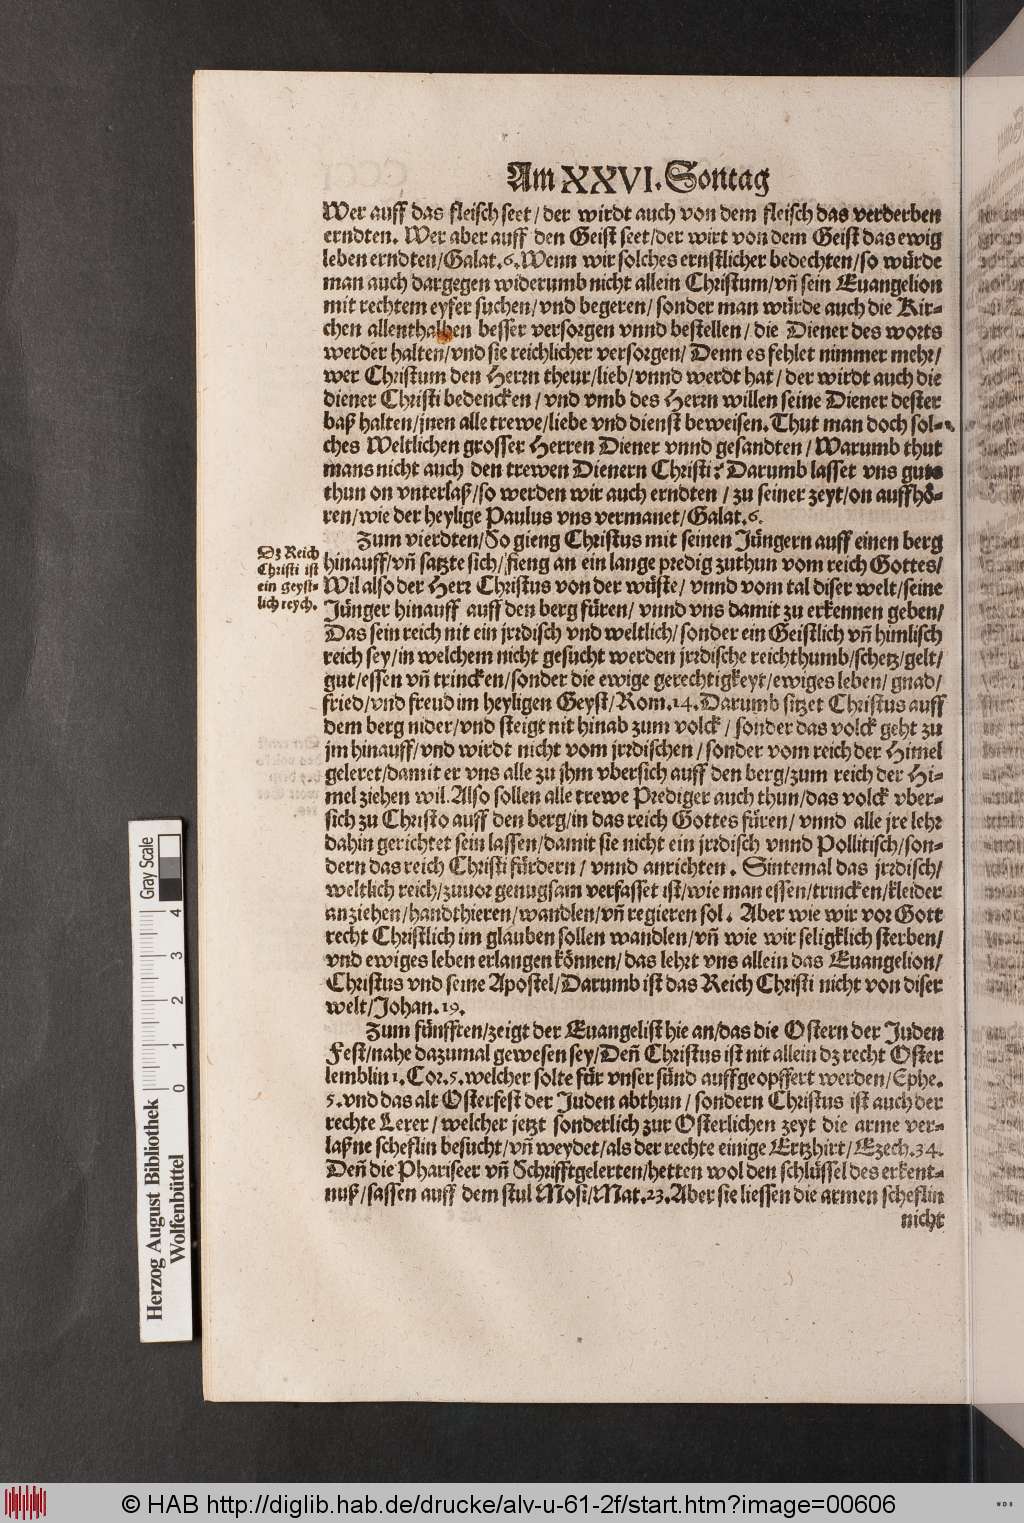 Am XXVI. Sontag
Wer auff das fleisch seet/ der wirdt auch von dem fleisch das verderben
erndten. Wer aber auff den Geist seet/der wirt von dem Geist das ewig
leben erndten/Galat.6. Wenn wir solches ernstlicher bedechten/so würde
man auch dargegen widerumb nicht allein Christum/vñ sein Euangelion
mit rechtem eyfer suchen/vnd begeren/ sonder man würde auch die Kir-
chen allenthalben besser versorgen vnnd bestellen/ die Diener des worts
werder halten/vnd sie reichlicher versorgen/ Denn es fehlet nimmer mehr/
wer Christum den Herrn theur/lieb/vnnd werdt hat/ der wirdt auch die
diener Christi bedencken/ vnd vmb des Herrn willen seine Diener dester
baß halten/jnen alle trewe/liebe vnd dienst beweisen. Thut man doch sol-
ches Weltlichen grosser Herren Diener vnnd gesandten/ Warumb thut
mans nicht auch den trewen Dienern Christi? Darumb lasset vns guts
thun on vnterlaß/so werden wir auch erndten/ zu seiner zeyt/on auffhö-
ren/wie der heylige Paulus vns vermanet/Galat.6.
Zum vierdten/So gieng Christus mit seinen Jüngern auff einen berg
Dz Reich
Christi ist
ein geyst-
lich reych.
hinauff/vñ satzte sich/fieng an ein lange predig zuthun vom reich Gottes/
Wil also der Herr Christus von der wüste/ vnnd vom tal diser welt/seine
Jünger hinauff auff den berg füren/ vnnd vns damit zu erkennen geben/
Das sein reich nit ein jrrdisch vnd weltlich/ sonder ein Geistlich vñ himlisch
reich sey/in welchem nicht gesucht werden jrrdische reichthumb/schetz/gelt/
gut/essen vñ trincken/sonder die ewige gerechtigkeyt/ewiges leben/ gnad/
fried/vnd freud im heyligen Geyst/Rom.14. Darumb sitzet Christus auff
dem berg nider/vnd steigt nit hinab zum volck/ sonder das volck geht zu
jm hinauff/vnd wirdt nicht vom jrrdischen/ sonder vom reich der Himel
geleret/damit er vns alle zu jhm vbersich auff den berg/zum reich der Hi-
mel ziehen wil. Also sollen alle trewe Prediger auch thun/das volck vber-
sich zu Christo auff den berg/in das reich Gottes füren/ vnnd alle jre lehr
dahin gerichtet sein lassen/damit sie nicht ein jrrdisch vnnd Pollitisch/son-
dern das reich Christi fürdern/ vnnd anrichten. Sintemal das jrrdisch/
weltlich reich/zuuor genugsam verfasset ist/wie man essen/trincken/kleider
anziehen/handthieren/wandlen/vñ regieren sol. Aber wie wir vor Gott
recht Christlich im glauben sollen wandlen/vñ wie wir seligklich sterben/
vnd ewiges leben erlangen können/das lehrt vns allein das Euangelion/
Christus vnd seine Apostel/Darumb ist das Reich Christi nicht von diser
welt/Johan.19.
Zum fünfften/zeigt der Euangelist hie an/das die Ostern der Juden
Fest/nahe dazumal gewesen sey/Deñ Christus ist nit allein dz recht Oster
lemblin 1. Cor.5. welcher solte für vnser sünd auffgeopffert werden/Ephe.
5. vnd das alt Osterfest der Juden abthun/ sondern Christus ist auch der
rechte Lerer/ welcher jetzt sonderlich zur Osterlichen zeyt die arme ver-
laßne scheflin besucht/vñ weydet/als der rechte einige Ertzhirt/Ezech.34.
Deñ die Phariseer vñ Schrifftgelerten/hetten wol den schlüssel des erkent-
nuß/sassen auff dem stul Mosi/Mat.23. Aber sie liessen die armen scheflin
nicht
Gray Scale
4
3
2
1
0
Herzog August Bibliothek
Wolfenbüttel
© HAB http://diglib.hab.de/drucke/alv-u-61-2f/start.htm?image=00606